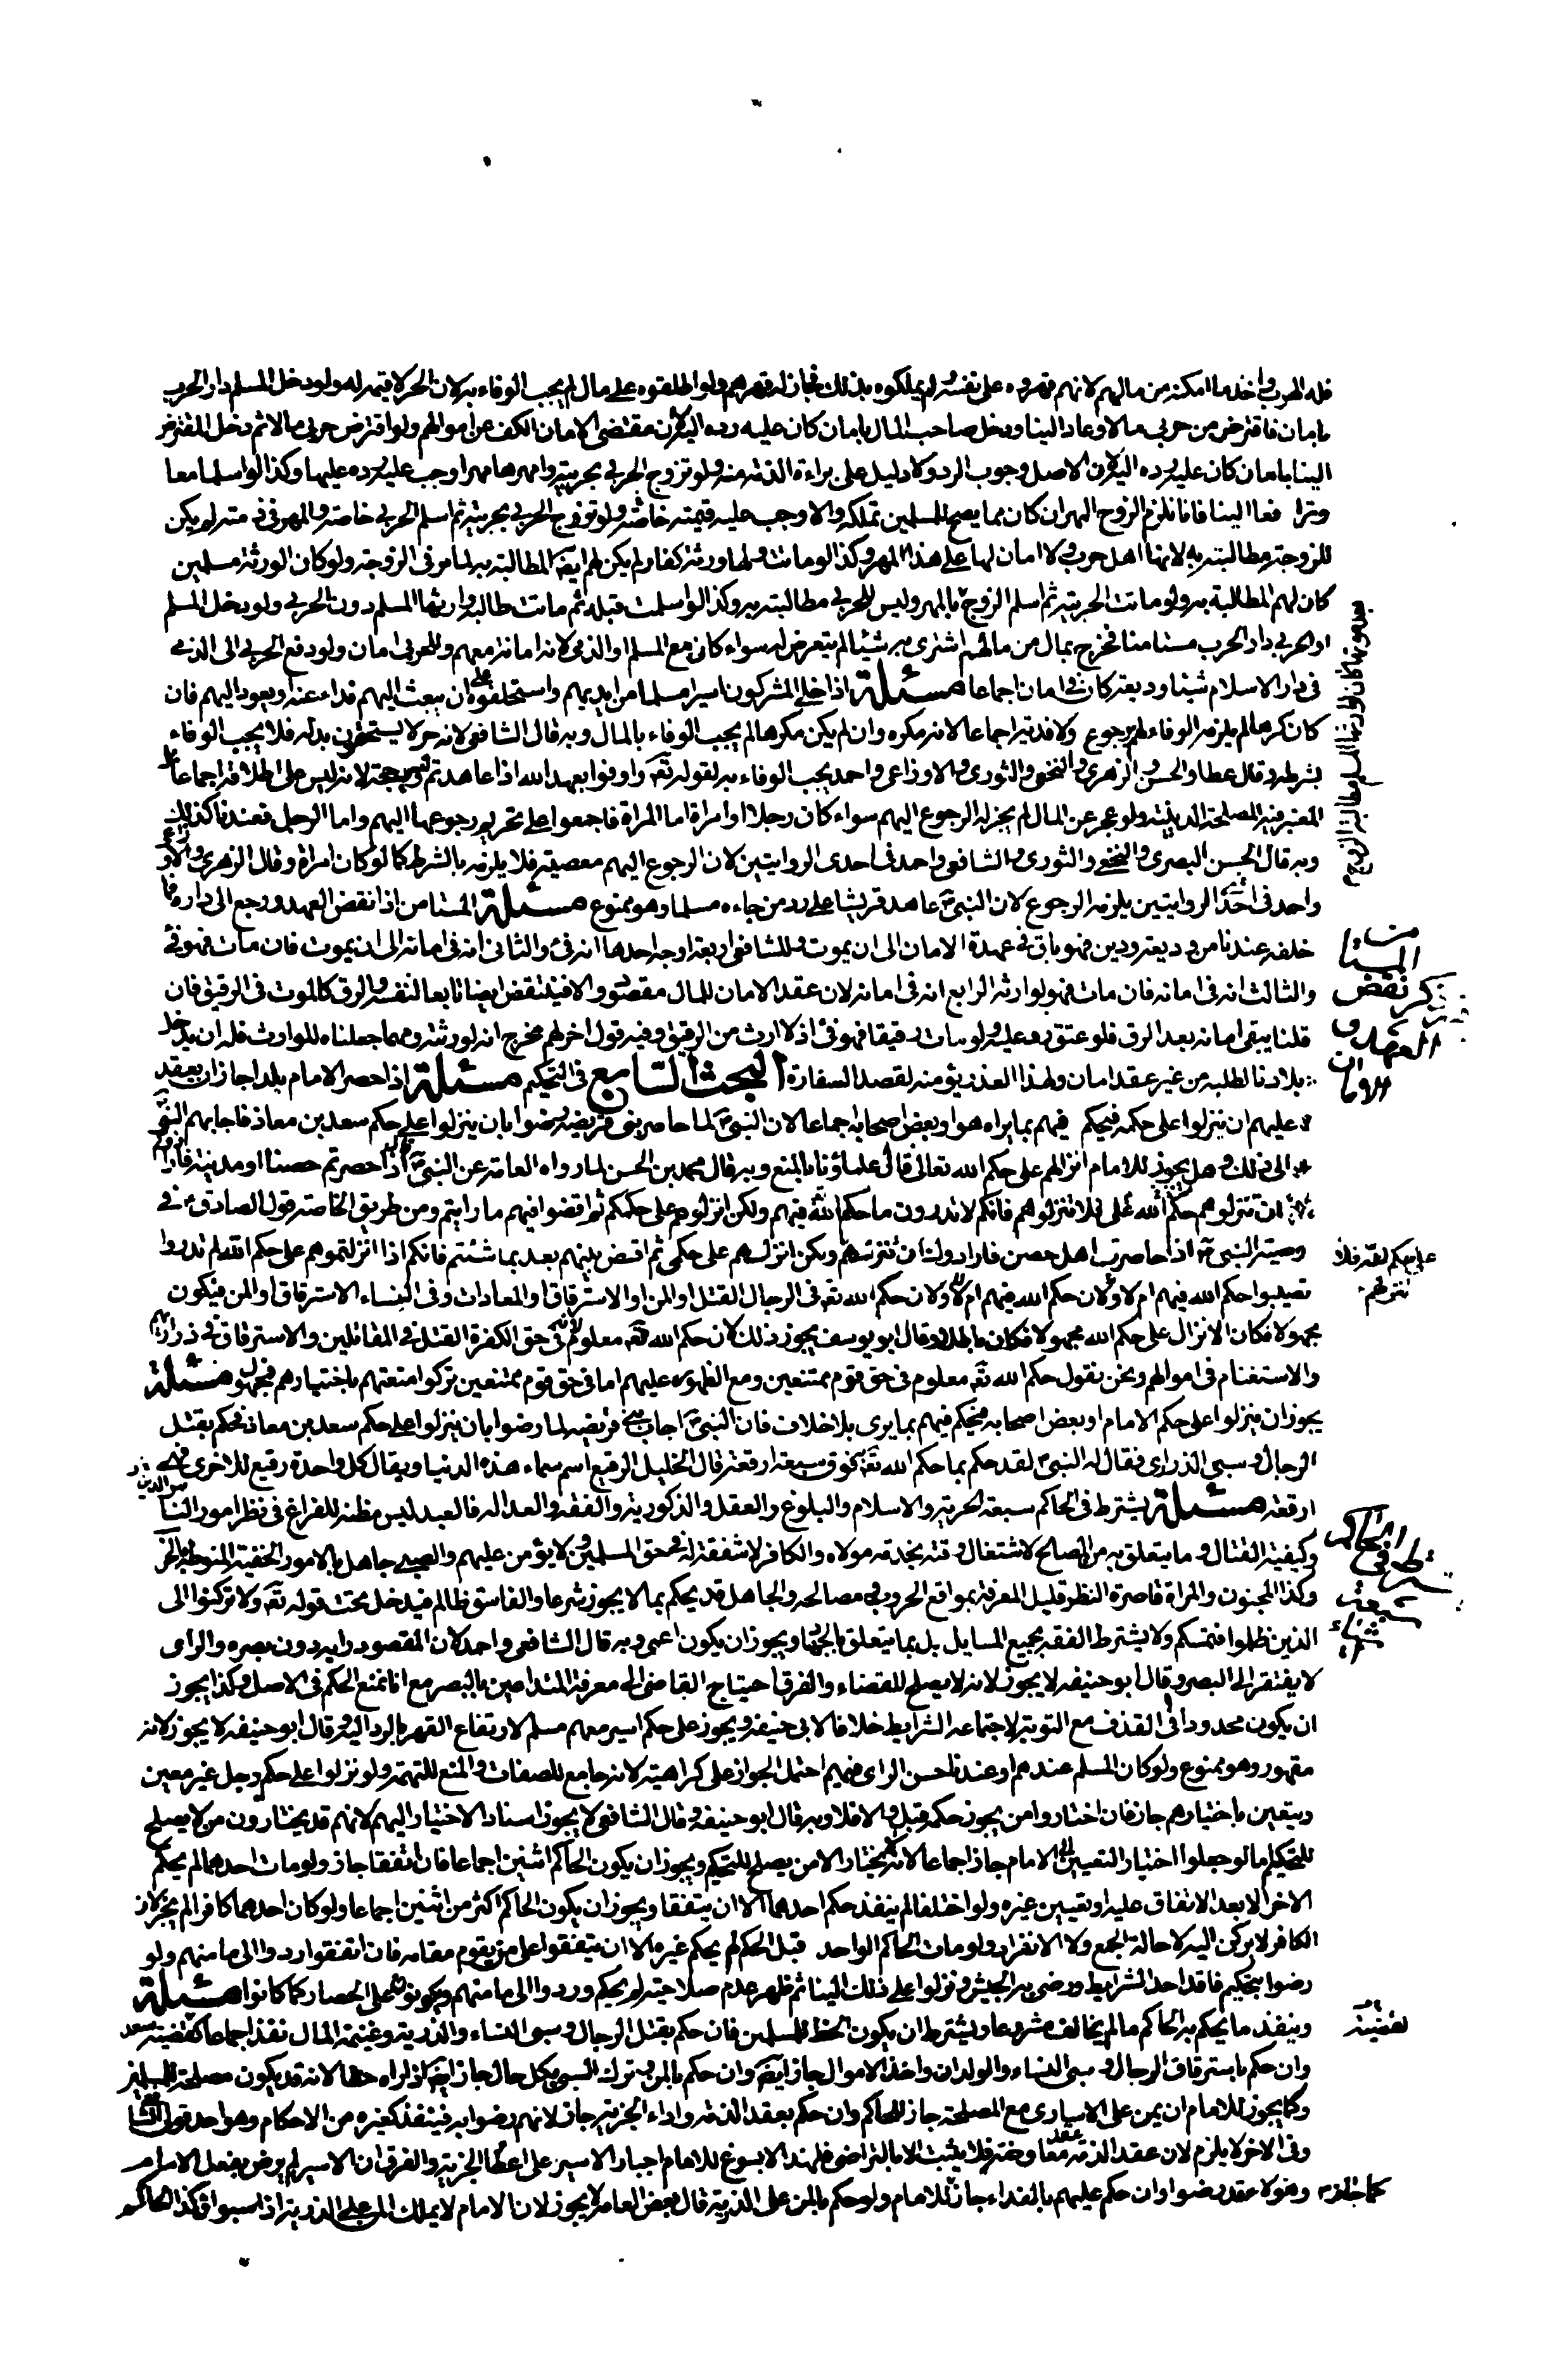 فله الهرب واخذ ما امكنه من مالهم لانهم قهروه على نفسه ولم يملكوه بذلك فجاز له قهرهم ولو اطلقوه على مال لم يجب الوفاء به لان الحر لا قيمة له ولو دخل المسلم دار الحرب
بامان فاقترض من حربي مالا وعاد الينا ودخل صاحب المال بامان كان عليه رده اليه لان مقتضى الامان الكف عن اموالهم ولو اقترض حربي مالا ثم دخل المقترض
الينا بامان كان عليه رده اليه لان الاصل وجوب الرد ولا دليل على براءة الذمة منه ولو تزوج الحربي بحربية وامهرها مهرا وجب عليه رده عليها وكذا لو اسلما معا
وترافعا الينا فانا نلزم الزوج المهر ان كان مما يصح للمسلمين تملكه والا وجب عليه قيمته خاصة ولو تزوج الحربي بحربية ثم اسلم الحربي خاصة والمهر في ذمته لم يكن
للزوجة مطالبته به لانها اهل حرب ولا امان لها على هذا المهر وكذا لو ماتت ولها ورثة كفار لم يكن لهم ايض المطالبة به لما مر في الزوجة ولو كان الورثة مسلمين
كان لهم المطالبة به ولو ماتت الحربية ثم اسلم الزوج بالمهر وليس للحربي مطالبته به وكذا لو اسلمت قبله ثم ماتت طالبه وارثها المسلم دون الحربي ولو دخل المسلم
او الحربي دار الحرب مستامنا فخرج بمال من مالهم اشترى به شيئا لم يتعرض له سواء كان مع المسلم او الذمي لانه امانة معهم وللحربي امان ولو دفع الحربي الى الذمي
في دار الاسلام شيئا وديعة كان في امان اجماعا مسئلة اذا خلى المشركون اسيرا مسلما من ايديهم واستحلفوه على ان يبعث اليهم فداء عنه او يعود اليهم فان
كان كرها لم يلزمه الوفاء لهم برجوع ولا فدية اجماعا لانه مكره وان لم يكن مكرها لم يجب الوفاء بالمال وبه قال الشافعي لانه حر لا يستحقون بدله فلا يجب الوفاء
بشرطه وقال عطا والحسن والزهري والنخعي والثوري والاوزاعي واحمد يجب الوفاء به لقوله تع واوفوا بعهد الله اذا عاهدتم وليس بحجة لانه ليس على اطلاقه اجماعا بل
المعتبر فيه المصلحة الدينية ولو عجز عن المال لم يجز له الرجوع اليهم سواء كان رجلا او امراة اما المراة فاجمعوا على تحريم رجوعها اليهم واما الرجل فعندنا كذلك
وبه قال الحسن البصري والنخعي والثوري والشافعي واحمد في احدى الروايتين لان الرجوع اليهم معصية فلا يلزمه بالشرط كما لو كان امراة وقال الزهري والاوزاعي
واحمد في احدى الروايتين يلزمه الرجوع لان النبي ص عاهد قريشا على رد من جاءه مسلما وهو ممنوع مسئلة المستامن اذا نقض العهد ورجع الى داره فما
خلفه عندنا من وديعة ودين فهو باق في عهدة الامان الى ان يموت وللشافعي اربعة اوجه احدها انه فيء والثاني انه في امانه الى ان يموت فان مات فهو فيء
والثالث انه في امانه فان مات فهو لوارثه الرابع انه في امانه لان عقد الامان للمال مقصود والا فينتقض ايضا تابعا لنفسه والرق كالموت في الرقيق فان
قلنا يبقى امانه بعد الرق فلو عتق رد عليه ولو مات رقيقا فهو فيء اذ لا ارث من الرقيق وفيه قول اخر لهم مخرج انه لورثته ومهما جعلناه للوارث فله ان يدخل
بلادنا لطلبه من غير عقد امان ولهذا العذر يؤمنه لقصد السفارة البحث التاسع في التحكيم مسئلة اذا حصر الامام بلدا جاز ان يعقد
عليهم ان ينزلوا على حكمه فيحكم فيهم بما يراه هو او بعض اصحابه اجماعا لان النبي ص لما حاصر بني قريضة رضوا بان ينزلوا على حكم سعد بن معاذ فاجابهم النبي ص
الى ذلك وهل يجوز للامام انزالهم على حكم الله تعالى قال علماؤنا بالمنع وبه قال محمد بن الحسن لما رواه العامة عن النبي ص اذا حصرتم حصنا او مدينة فارادوكم
ان تنزلوهم على حكم الله فلا تنزلوهم فانكم لا تدرون ما حكم الله فيهم ولكن انزلوهم على حكمكم ثم اقضوا فيهم ما رايتم ومن طريق الخاصة قول الصادق ع في
وصية النبي ص اذا حاصرت اهل حصن فارادوك ان تنزلهم ولكن انزلهم على حكمي ثم اقض بينهم بعد بما شئتم فانكم اذا انزلتموهم على حكم الله لم تدروا
تصيبوا حكم الله فيهم ام لا ولان حكم الله فيهم ام لا ولان حكم الله تع في الرجال القتل او المن او الاسترقاق او المفادات وفي النساء الاسترقاق او المن فيكون
مجهولا فكان الانزال على حكم الله مجهولا فكان باطلا وقال ابو يوسف يجوز ذلك لان حكم الله تع معلوم لانه في حق الكفرة القتل في المقاتلين والاسترقاق في ذراريهم
والاستغنام في اموالهم ونحن نقول حكم الله تع معلوم في حق قوم ممتنعين ومع الظهور عليهم اما في حق قوم ممتنعين تركوا منعتهم باختيارهم فمجهول مسئلة
يجوز ان ينزلوا على حكم الامام او بعض اصحابه فيحكم فيهم بما يرى بلا خلاف فان النبي ص اجاب بني قريضة لما رضوا بان ينزلوا على حكم سعد بن معاذ فحكم بقتل
الرجال وسبي الذراري فقال له النبي ص لقد حكم بما حكم الله تع به فوق سبعة ارقعة قال الخليل الرقيع اسم سماء هذه الدنيا ويقال كل واحدة رقيع للاخرى فهي
ارقعة مسئلة يشترط في الحاكم سبعة الحرية والاسلام والبلوغ والعقل والذكورية والفقه والعدالة فالعبد ليس مظنة للفراغ في نظر امور الناس
وكيفية القتال وما يتعلق به من المصالح لاشتغال وقته بخدمة مولاه والكافر لا شفقة له في حق المسلمين ولا يؤمن عليهم والصبي جاهل بالامور الخفية المنوطة بالحرب
وكذا المجنون والمراة قاصرة النظر قليل المعرفة بمواقع الحروب ومصالحه والجاهل قد يحكم بما لا يجوز شرعا والفاسق ظالم فيدخل تحت قوله تع ولا تركنوا الى
الذين ظلموا فتمسكم ولا يشترط الفقه بجميع المسايل بل بما يتعلق بالجهاد ويجوز ان يكون اعمى وبه قال الشافعي واحمد لان المقصود رايه دون بصره والراى
لا يفتقر الى البصر وقال ابو حنيفه لا يجوز لانه لا يصلح للقضاء والفرق احتياج القاضي الى معرفة المتداعيين بالبصر مع انا نمنع الحكم في الاصل وكذا يجوز
ان يكون محدودا في القذف مع التوبة لاجتماعه الشرايط خلافا لابي حنيفه ويجوز على حكم اسير معهم مسلم لارتفاع القهر بالرد اليه وقال ابو حنيفه لا يجوز لانه
مقهور وهو ممنوع ولو كان المسلم عندهم او عندنا حسن الراى فيهم احتمل الجواز على كراهية لانه جامع للصفات والمنع للتهمة ولو نزلوا على حكم رجل غير معين
ويتعين باختيارهم جاز فان اختاروا من يجوز حكمه قبل والا فلا وبه قال ابو حنيفه وقال الشافعي لا يجوز اسناد الاختيار اليهم لانهم قد يختارون من لا يصلح
للتحكيم اما لو جعلوا اختيار التعيين الى الامام جاز اجماعا لانه لا يختار الا من يصلح للتحكيم ويجوز ان يكون الحاكم اثنين اجماعا فان اتفقا جاز ولو مات احدهما لم يحكم
الاخر الا بعد الاتفاق عليه او تعيين غيره ولو اختلفا لم ينفذ حكم احدهما الا ان يتفقا ويجوز ان يكون الحاكم اكثر من اثنين اجماعا ولو كان احدهما كافرا لم يجز لان
الكافر لا يركن اليه لا حالة الجمع ولا الانفراد ولو مات الحاكم الواحد قبل الحكم لم يحكم غيره الا ان يتفقوا على من يقوم مقامه فان اتفقوا ردوا الى مامنهم ولو
رضوا بتحكيم فاقد احد الشرايط ورضي به الجيش ونزلوا على ذلك الينا ثم ظهر عدم صلاحيته لم يحكم وردوا الى مامنهم ويكونون على الحصار كما كانوا مسئلة
وينفذ ما يحكم به الحاكم ما لم يخالف مشروعا ويشترط ان يكون الحظ للمسلمين فان حكم بقتل الرجال وسبي النساء والذرية وغنيمة المال نفذ اجماعا كقضية سعد
وان حكم باسترقاق الرجال وسبي النساء والولدان واخذ الاموال جاز ايض وان حكم بالمن وترك السبي بكل حال جاز ايض اذا راه حظا لانه قد يكون مصلحة للمسلمين
وكما يجوز للامام ان يمن على الاسارى مع المصلحة جاز للحاكم وان حكم بعقد الذمة واداء الجزية جاز لانهم رضوا به فينفذ كغيره من الاحكام وهو احد قولي الشافعي
وفي الاخر لا يلزم لان عقد الذمة عقد معاوضة فلا يثبت الا بالتراضي فلهذا لا يسوغ للامام اجبار الاسير على اعطا الجزية والفرق ان الاسير لم يرض بفعل الامام
وهؤلاء قد رضوا وان حكم عليهم بالفداء جاز للامام ولو حكم بالمن على الذرية قال بعض العامة لا يجوز لان الامام لا يملك المن على الذرية اذا سبوا فكذا الحاكم
المستامن
ذكر نقض
العهد و
الامان
على حكم الله فلا
تنزلهم
شرط في الحاكم
سبعة
اشياء